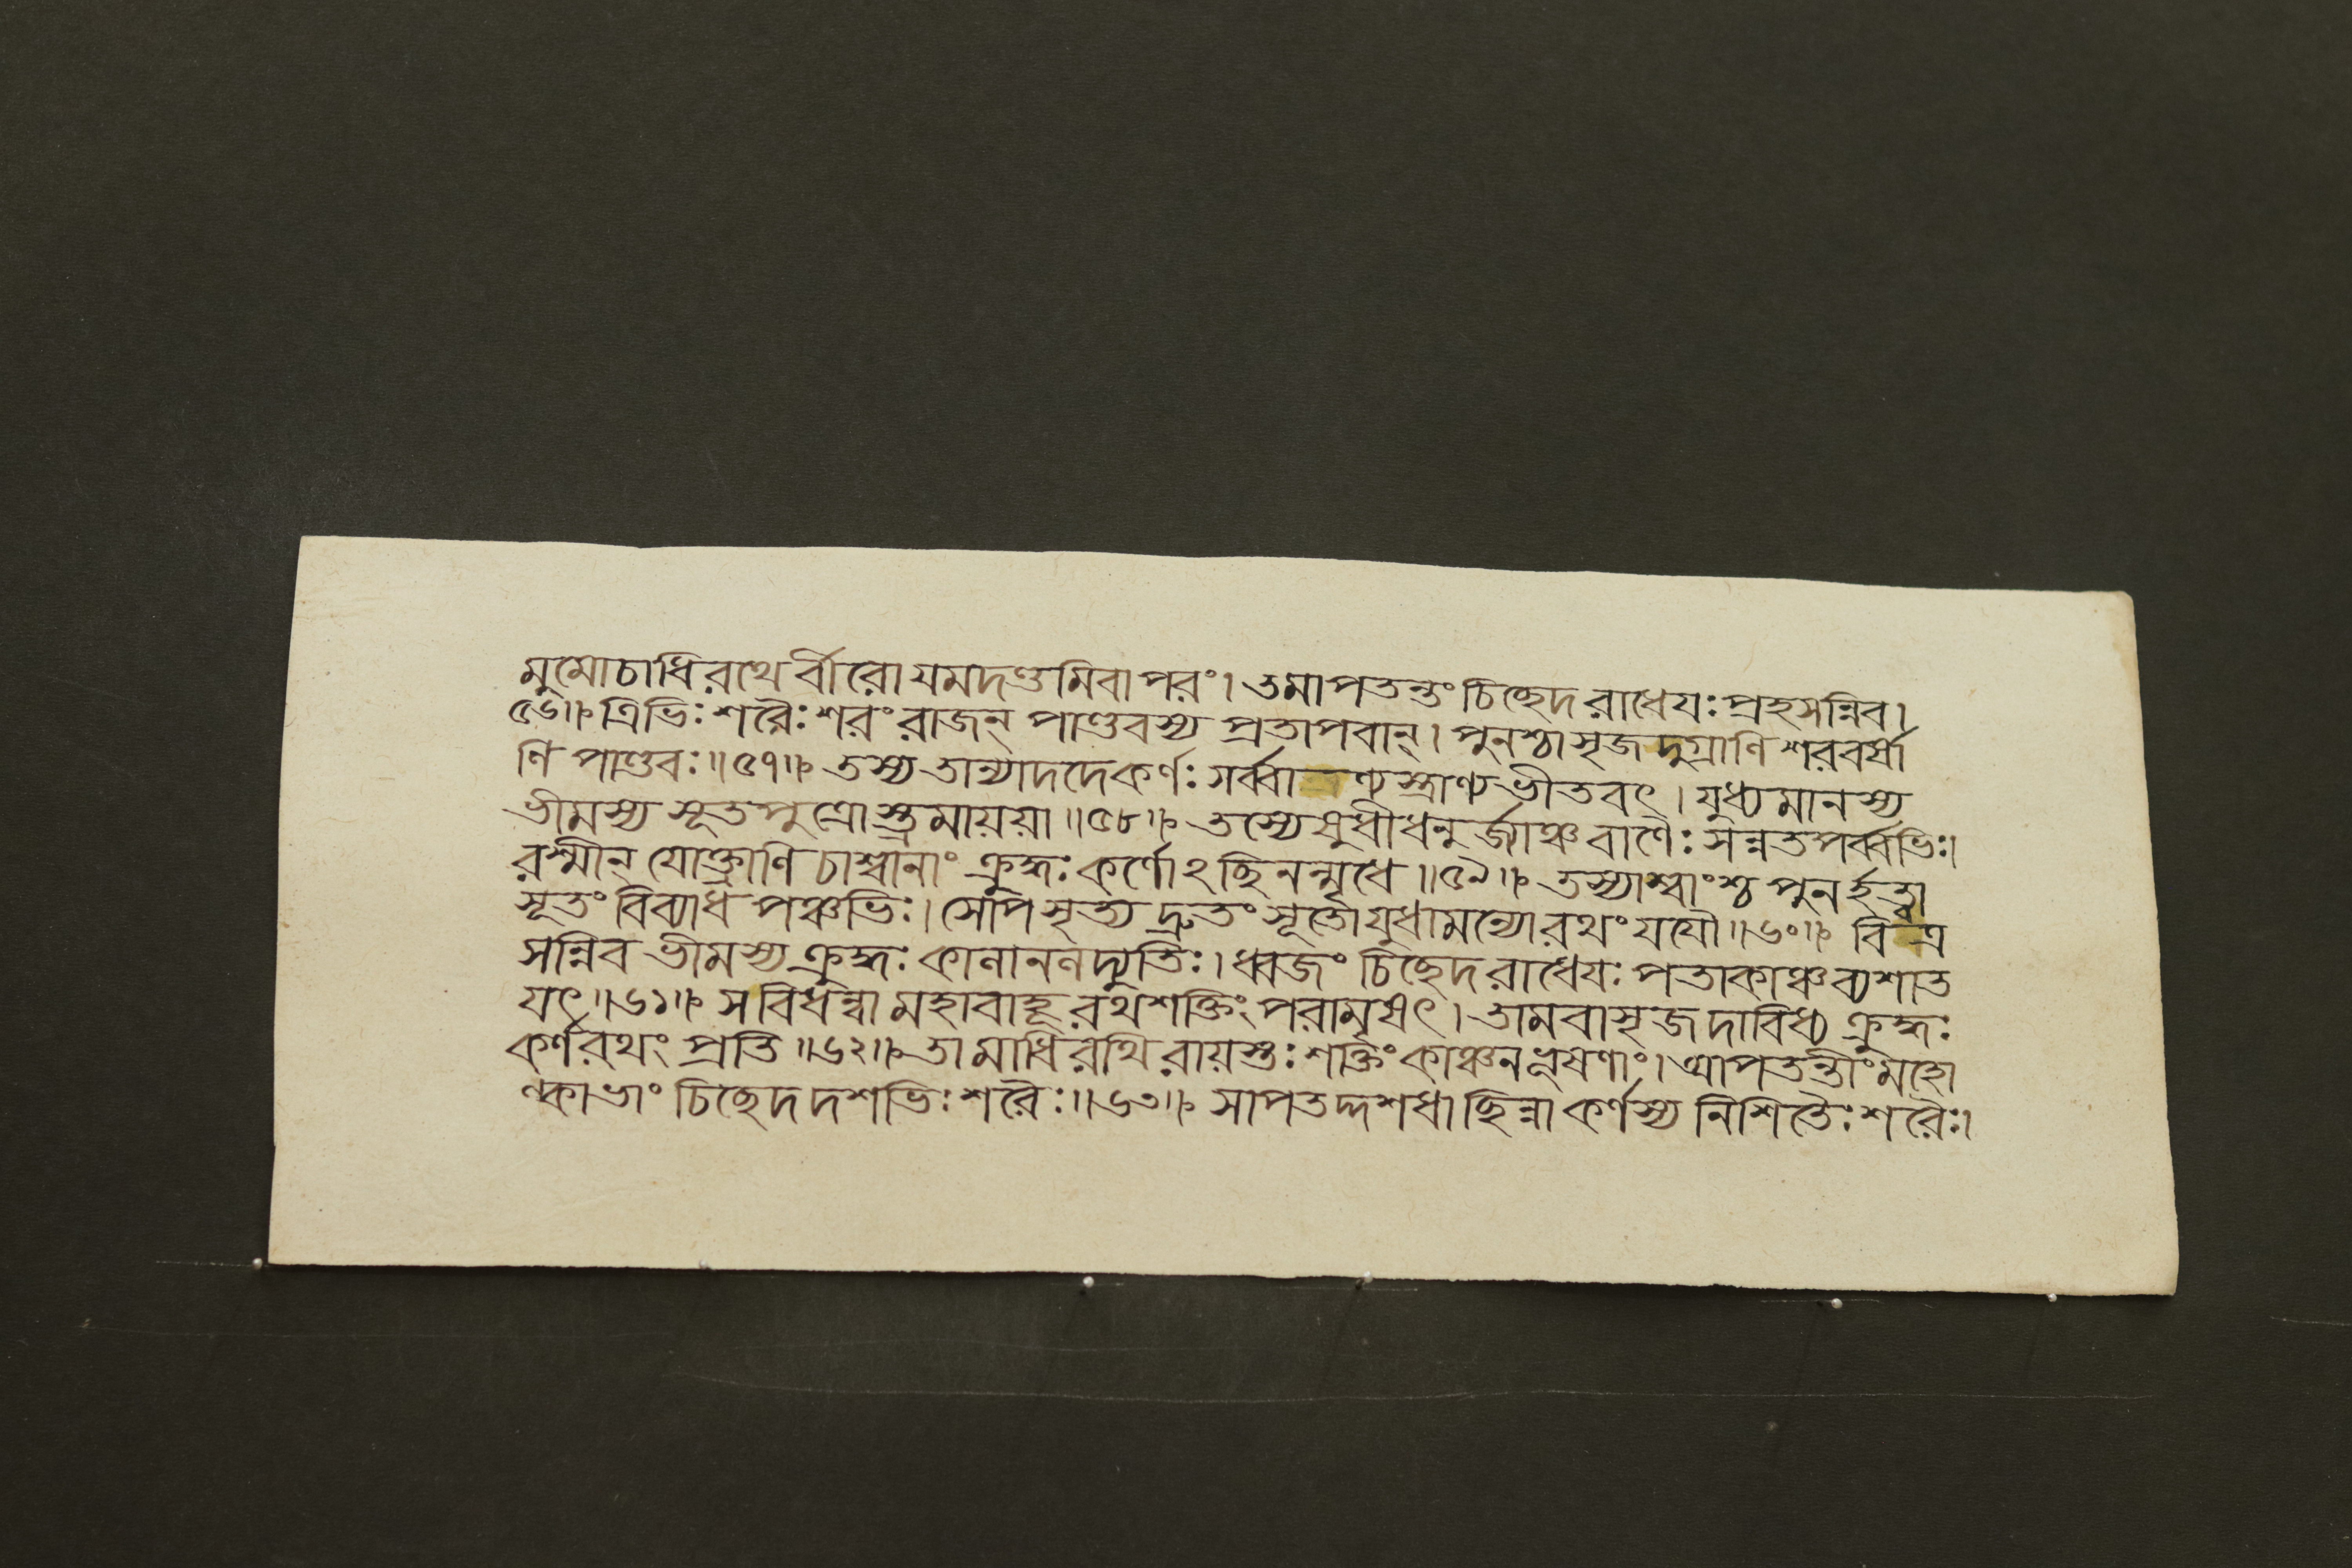 মুমোচাধিরথের্বীরোযমদণ্ডমিবাপরং। তমাপতন্তং চিচ্ছেদ রাধেযঃ প্রহসন্নিব।
৫৬॥ ত্রিভিঃ শরৈঃ শরং রাজন্ পাণ্ডবস্য প্রতাপবান্। পুনশ্চাসৃজদুগ্রাণি শরবর্ষা
ণি পাণ্ডবঃ॥৫৭॥ তস্য তান্যাদদে কর্ণঃ সর্ব্বা ণ্যস্ত্রাণ্যভীতবৎ। যুধ্যমানস্য
ভীমস্য সূতপুত্রোস্ত্রমায়য়া॥৫৮॥ তস্যেষুধীধনুর্জ্যাঞ্চ বাণৈঃ সন্নতপর্ব্বভিঃ।
রশ্মীন্ যোক্ত্রাণি চাশ্বানাং ক্রুদ্ধঃ কর্ণোঽচ্ছিনন্মৃধে॥৫৯॥ তস্যাশ্বাংশ্চ পুনর্হত্বা
সূতং বিব্যাধ পঞ্চভিঃ। সোপসৃত্য দ্রুতং সূতোযুধামন্যোরথং যযৌ॥৬০॥ বি ত্র
সন্নিব ভীমস্য ক্রুদ্ধঃ কালানলদ্যুতিঃ। ধ্বজং চিচ্ছেদ রাধেযঃ পতাকাঞ্চ ব্যশাত
যৎ॥৬১॥ স বিধন্বা মহাবাহূরথশক্তিং পরামৃষৎ। তামবাসৃজদাবিধ্য ক্রুদ্ধঃ
কর্ণরথং প্রতি॥৬২॥ তামাধিরথিরায়স্তঃ শক্তিং কাঞ্চনভূষণাং। আপতন্তীং মহো
ল্কাভাং চিচ্ছেদ দশভিঃ শরৈঃ॥৬৩॥ সাপতদ্দশধা ছিন্না কর্ণস্য নিশিতৈঃ শরৈঃ।